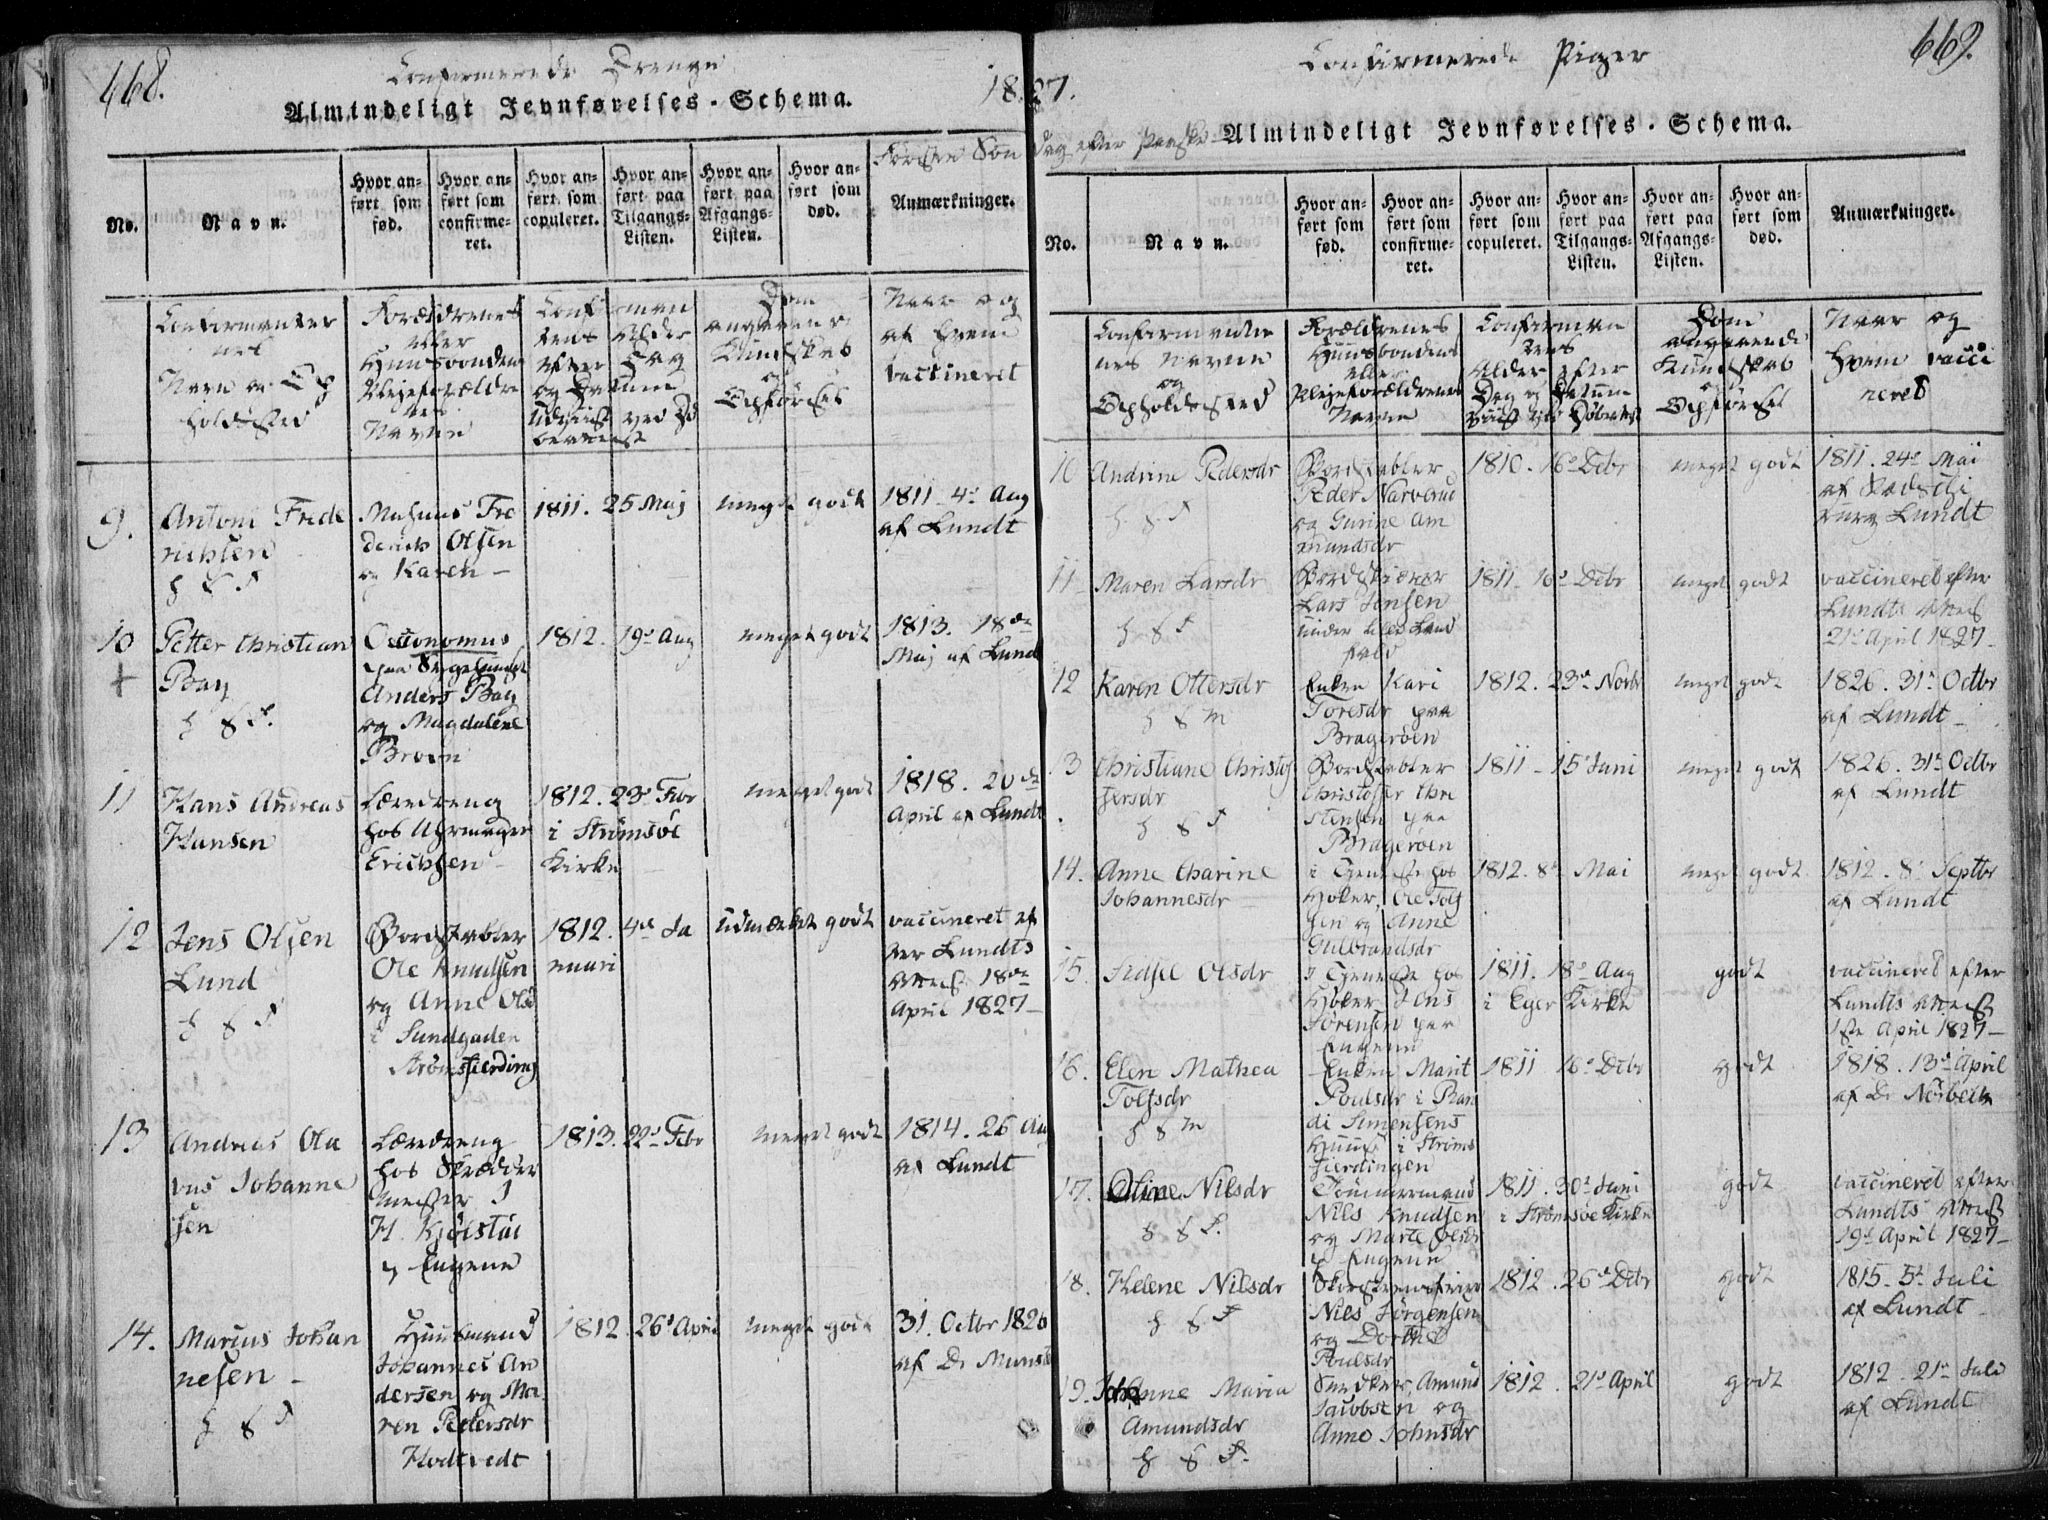 468.
Confirmerede Drenge
1827.
Almindeligt Jevnførelses-Schema.
Første Søn
No.
Navn.
Hvor anført som fød.
Hvor anført som confirmeret.
Hvor anført som copuleret.
Hvor anført paa Tilgangs-Listen.
Hvor anført paa Afgangs-Listen.
Hvor anført som død.
Anmærkninger.
Confirmanter
nes
Navn og Op
holdssted
Forældrenes
eller
Huusbondens
Pleieforældre
nes
Navne
Confirman
tens Alder
efter Dag
og Datum
Udviist ved Dø
beattest
Dom
angaaende
Kundskab
og
Opførsel
Naar og
af hvem
vaccineret
9.
Antoni Frede
richsen
Frederich Olsen
og Karen
1811. 25 Maj
meget godt
1811. 4d Aug
af Lundt
10
+
Petter Christian
Bay
Oeconomus
Anders Bay
og Magdalene
1812. 19d Aug
meget godt
1813. 18de
Maj af Lundt
11
Hans Andreas
Hansen
Læredreng
hos Uhrmager
Erichsen
1812. 23d Febr
i Strømsøe
Kirke
meget godt
1818. 20de
April af Lundt
12
Jens Olsen
Lund
Bordstabler
Ole Knudsen
og Anne Olsd
i Sundgaden
Strømsfierding
1812. 4de Ja
nuari
udmærket godt
vaccineret ef
ter Lundts
Attest 18de
April 1827
13
Andreas Ola
vus Johanne
sen
Læredreng
hos Skrædder
mester J
H. Kjølstad
p Engene
1813. 22d Febr
meget godt
1814. 26 Aug
af Lundt
14.
Marius Johan
nesen
Huusmand
Johannes An
dersen og Ma
ren Pedersdr
Hodtvedt
1812. 26d April
meget godt
31. Octbr 1826
af Dr Munster
669.
Confirmerede Piger
dag efter Paaske
Almindeligt Jevnførelses-Schema.
No.
Navn.
Hvor anført som fød.
Hvor anført som confirmeret.
Hvor anført som copuleret.
Hvor anført paa Tilgangs-Listen.
Hvor anført paa Afgangs-Listen.
Hvor anført som død.
Anmærkninger.
Confirmanter
nes Navne
og
Opholdssted
Forældrenes
Huusbondens
eller
Pleieforældrenes
Navne
Confirman
tens
Alder efter
Dag og Datum
Dom
angaaende
Kundskab
og
Opførsel
Naar og
hvem vacci
neret
10
Andrine Pedersdr
Bordstabler
Peder Narverud
og Gurine Am
mundsdr
1810. 16d Debr
meget godt
1811. 24d Mai
af
Lundt
11
Maren Larsdr
Lars Jensen
under
1811. 16d Debr
meget godt
vaccineret efter
Lundts Attest
21d April 1827
12
Karen Ottersdr
Enken Kari
Toresdr paa
Bragerøen
1812. 23d Novbr
meget godt
1826. 31d Octbr
af Lundt
13
Christiane Christof
fersdr
Bordstabler
Christoffer Chri
stensen paa
Bragerøen
1811. 15d Juni
meget godt
1826. 31d Octbr
af Lundt
14.
Anne Charine
Johannesdr
i Tjeneste hos
Høker Ole Tolf
sen og Anne
Gulbrandsdr
1812. 8d Mai
meget godt
1812. 8d Septbr
af Lundt
15.
Sidsel Olsdr
I Tjeneste hos
Høker Jens
Sørensen paa
Engene
1811. 18d Aug
i Eger Kirke
godt
vaccineret efter
Lundts Attest
1ste April 1827
16.
Elen Mathea
Tolfsdr
Enken Marit
Poulsdr i Ran
di Simensens
Huus i Strøms
fierdingen
1811 16d Debr
godt
1818. 13d April
af Dr Nørbech
17.
Oline Nilsdr
Tømmermand
Nils Knudsen
og Marte Olsdr
p Engene
1811. 30d Juni
i Strømsøe Kirke
godt
vaccineret efter
Lundts Attest
19d April 1827
18.
Helene Nilsdr
Skorsteensfeier
Nils Jørgensen
og Dorthe
Poulsdr
1812. 26d Debr
godt
1815. 5d Juli
af Lundt
19.
Johanne Maria
Amundsdr
Snedker Amund
Jacobsen og
Anne Johnsdr
1812. 21d April
godt
1812. 21d Juli
af Lundt